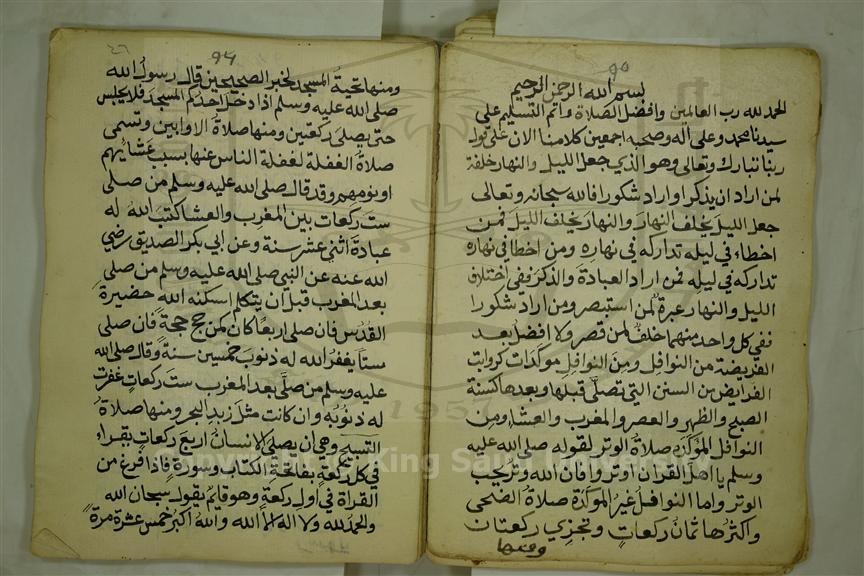 ٩٥
بسم الله الرحمن الرحيم
الحمد لله رب العالمين وافضل الصلاة واتم التسليم على
سيدنا محمد وعلى آله وصحبه اجمعين كلامنا الان على قول
ربنا تبارك وتعالى وهو الذي جعل الليل والنهار خلفة
لمن اراد ان يذكر او اراد شكورا فالله سبحانه وتعالى
جعل الليل يخلف النهار والنهار يخلف الليل فمن
اخطاء في ليله تداركه في نهاره ومن اخطا في نهاره
تداركه في ليله فمن اراد العبادة والذكر ففي اختلاف
الليل والنهار عبرة لمن استبصر ومن اراد شكورا
ففي كل واحد منهما خلف لمن قصر ولا افضل بعد
الفريضة من النوافل ومن النوافل موكدات كرواتب
الفرايض من السنن التي تصلى قبلها وبعدها كسنة
الصبح والظهر والعصر والمغرب والعشا ومن
النوافل المؤكدة صلاة الوتر لقوله صلى الله عليه
وسلم يا اهل القران اوتروا فان الله وتر يحب
الوتر واما النوافل غير المؤكدة صلاة الضحى
واكثرها ثمان ركعات وتجزي ركعتان
ومنها
٤٦
٩٦
ومنها تحية المسجد لخبر الصحيحين قال رسول الله
صلى الله عليه وسلم اذا دخل احدكم المسجد فلا يجلس
حتى يصلي ركعتين ومنها صلاة الاوابين وتسمى
صلاة الغفلة لغفلة الناس عنها بسبب عشائهم
او نومهم وقد قال صلى الله عليه وسلم من صلى
ست ركعات بين المغرب والعشا كتب الله له
عبادة اثني عشر سنة وعن ابي بكر الصديق رضي
الله عنه عن النبي صلى الله عليه وسلم من صلى
بعد المغرب قبل ان يتكلم اسكنه الله حضيرة
القدس فان صلى اربعا كان كمن حج حجة فان صلى
ستا يغفر الله له ذنوب خمسين سنة وقال صلى الله
عليه وسلم من صلى بعد المغرب ست ركعات غفرت
له ذنوبه وان كانت مثل زبد البحر ومنها صلاة
التسبيح وهي ان يصلي الانسان اربع ركعات يقراء
في كل ركعة بفاتحة الكتاب وسورة فاذا فرغ من
القراة في اول ركعة وهو قايم يقول سبحان الله
والحمد لله ولا اله الا الله والله اكبر خمس عشرة مرة
Copyright © King Saud University
1957